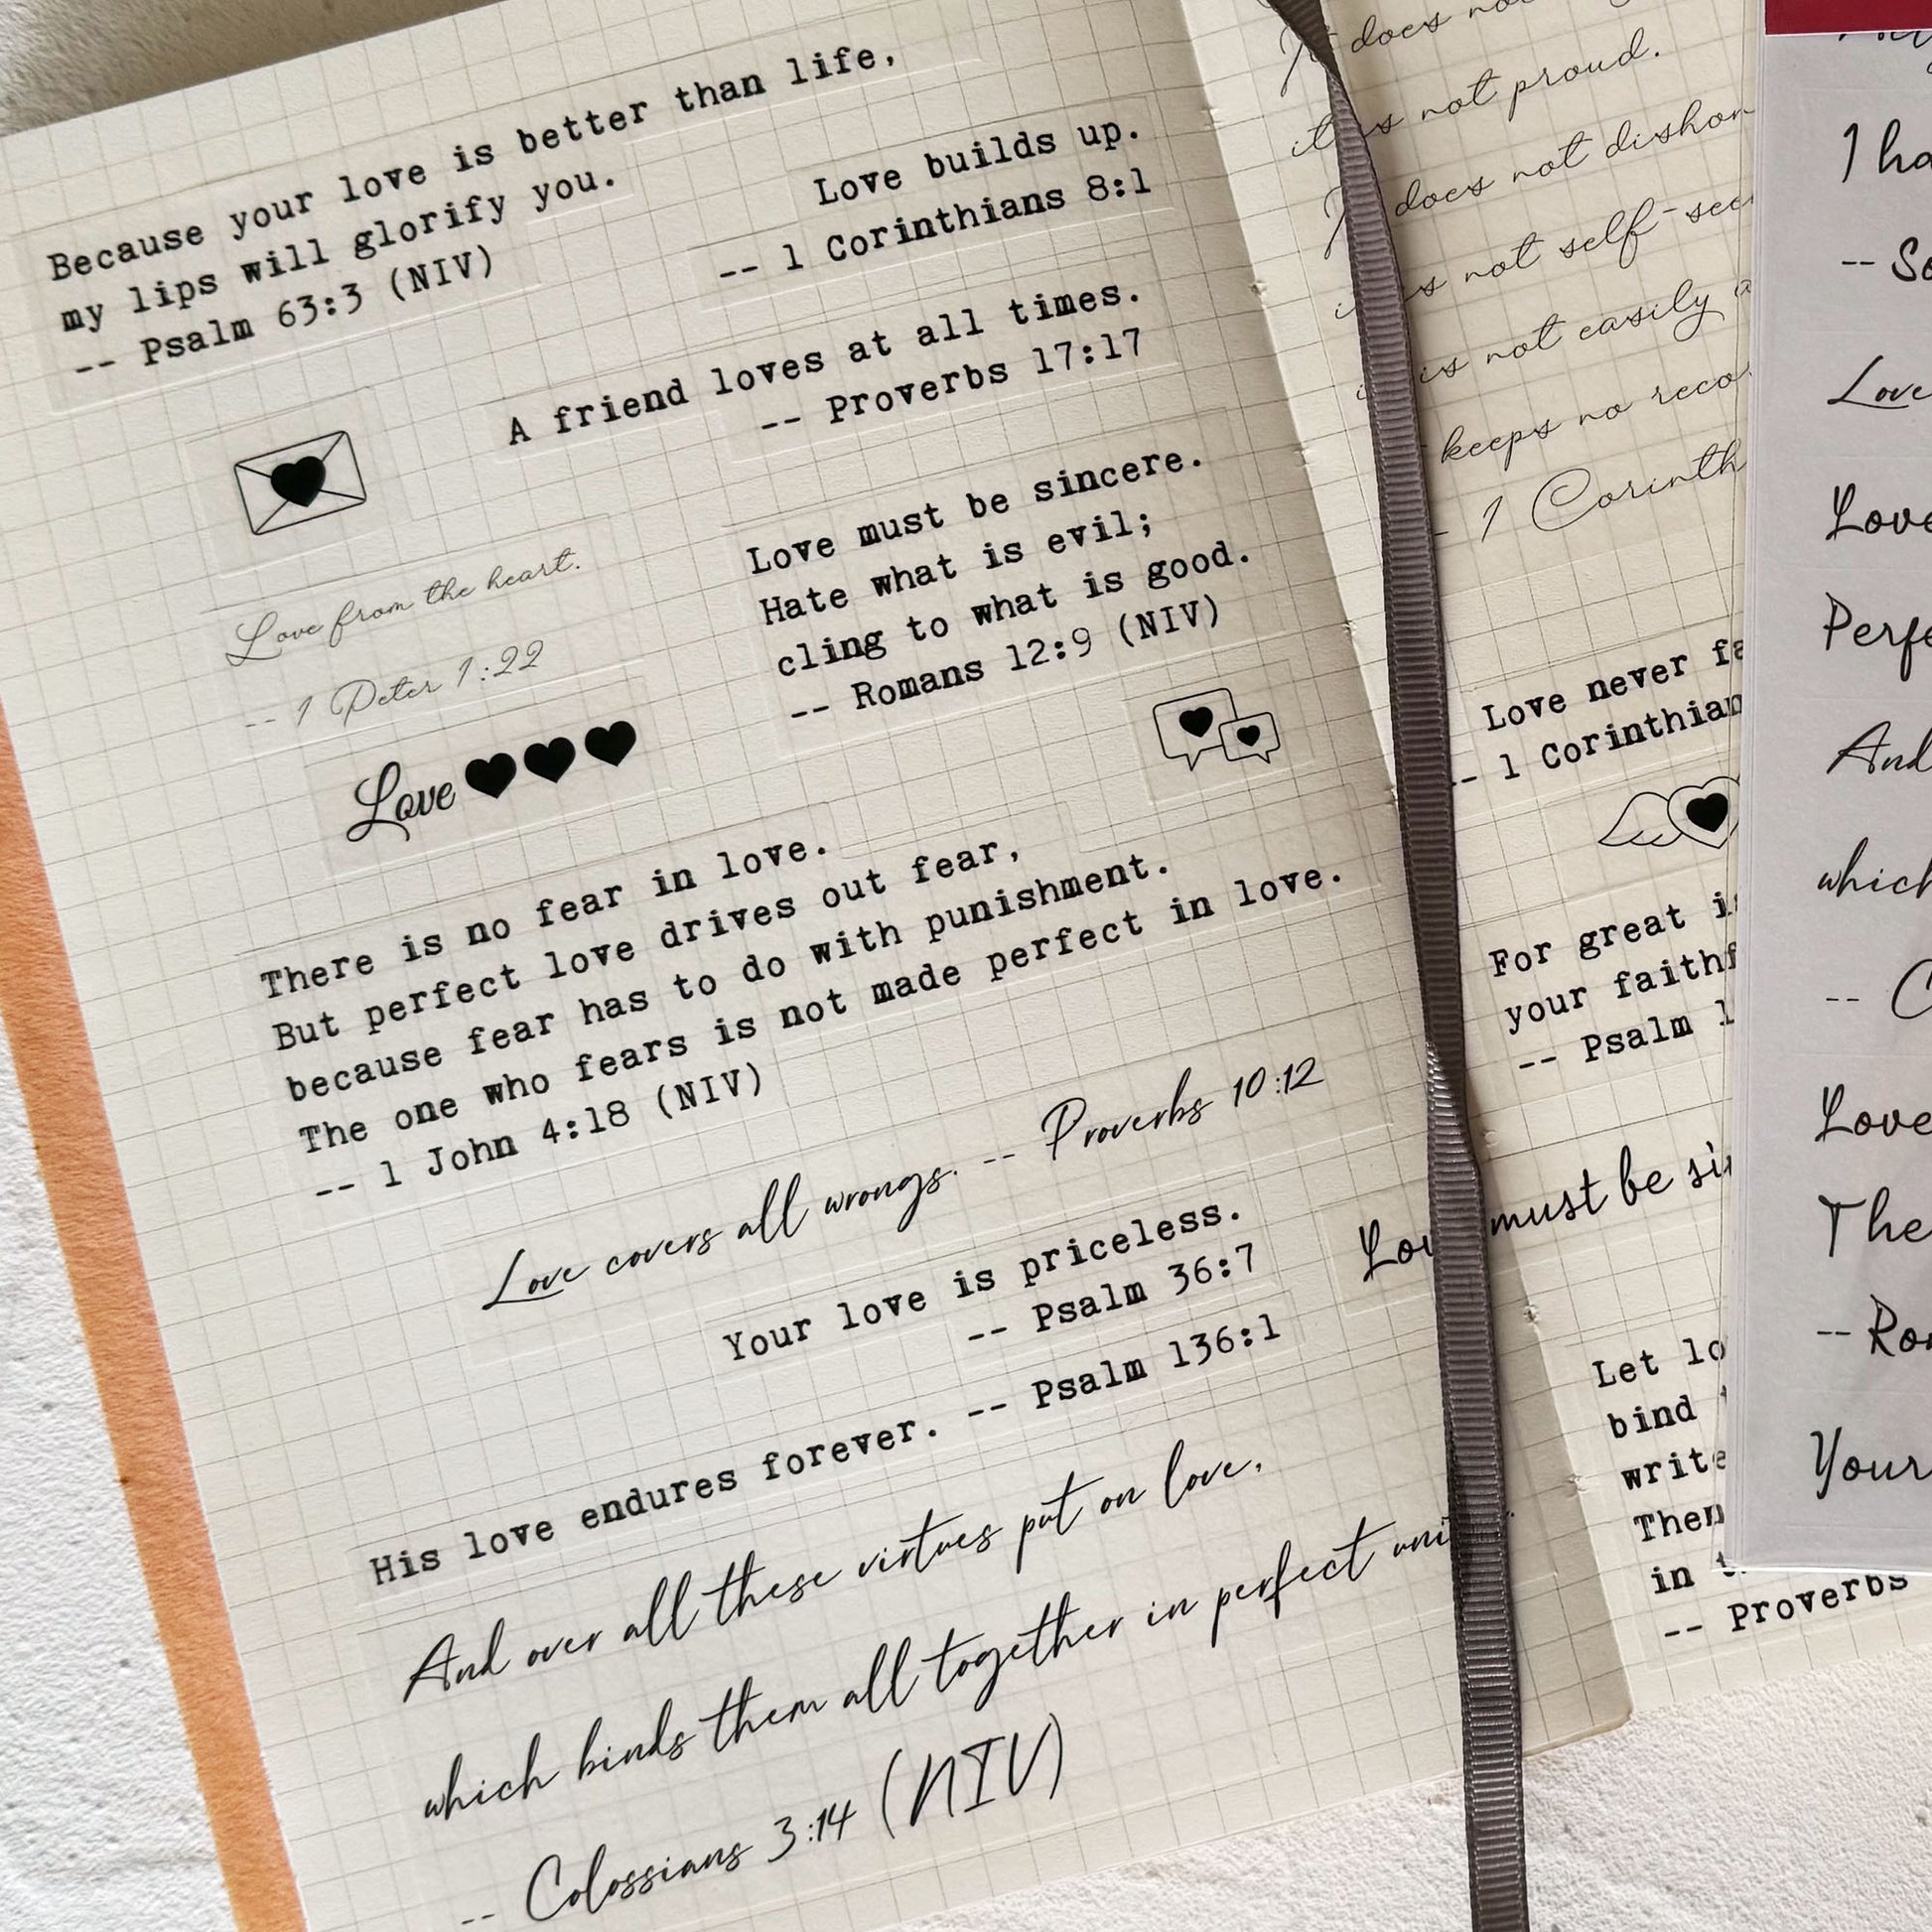 Because your love is better than life,
my lips will glorify you.
-- Psalm 63:3 (NIV)
Love builds up.
-- 1 Corinthians 8:1
A friend loves at all times.
-- Proverbs 17:17
Love from the heart.
-- 1 Peter 1:22
Love must be sincere.
Hate what is evil;
cling to what is good.
-- Romans 12:9 (NIV)
Love
There is no fear in love.
But perfect love drives out fear,
because fear has to do with punishment.
The one who fears is not made perfect in love.
-- 1 John 4:18 (NIV)
Love covers all wrongs. -- Proverbs 10:12
Your love is priceless.
-- Psalm 36:7
His love endures forever. -- Psalm 136:1
And over all these virtues put on love,
which binds them all together in perfect
-- Colossians 3:14 (NIV)
does
is not proud.
does not
is not
is not easily
keeps no
1
Love never
-- 1
For great
your
-- Psalm
must be
Let
bind
in
-- Proverbs
I
--
Love
--